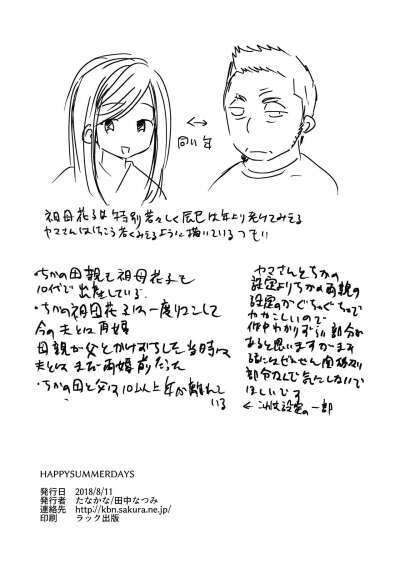 同い年
祖母花子は特別若々しく辰巳は年より老けてみえる
ヤマさんはけっこう若くみえるように描いているつもり
・ちかの母親も祖母花子も
10代で出産している。
・ちかの祖母花子は一度りこんして
今の夫とは再婚
母親が父とかけおちした当時は
夫とはまだ再婚前だった
・ちかの母と父は10以上年が離れて
いる
ヤマさんとちかの
設定よりちかの両親の
設定のがぐちゃぐちゃで
ややこしいので
作中わかりずらい部分が
あると思いますがまず
話にはぜんぜん関係ない
部分なんで気にしないで
ほしいです
← これは設定の一部
HAPPYSUMMERDAYS
発行日 2018/8/11
発行者 たなかな/田中なつみ
連絡先 http://kbn.sakura.ne.jp/
印刷 ラック出版